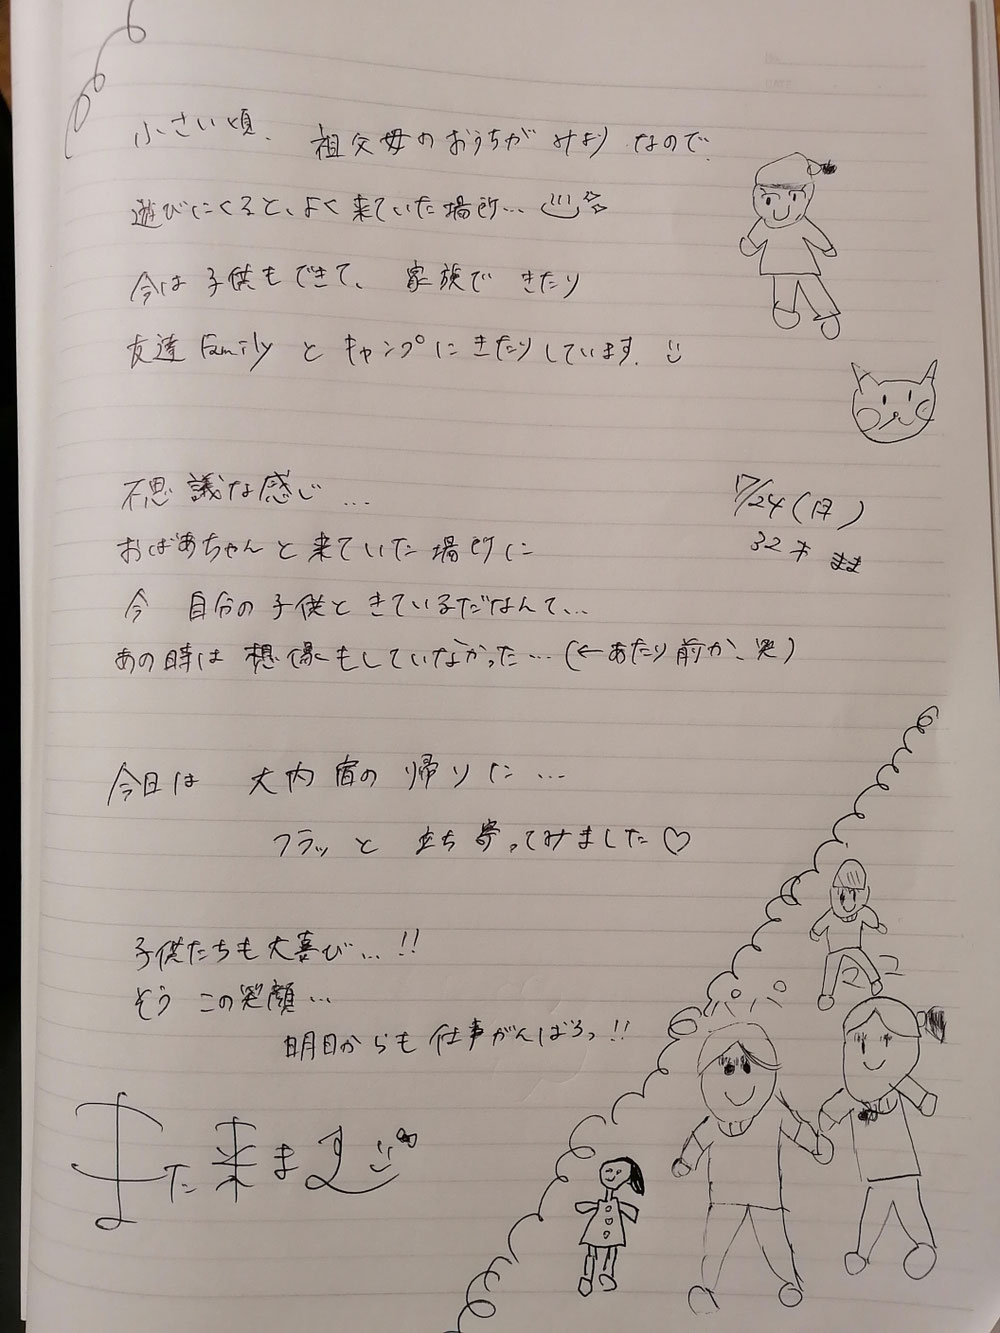 小さい頃、祖父母のおうちが みより なので、
遊びにくると、よく来ていた場所…
今は子供もできて、家族で きたり
友達Familyとキャンプにきたりしています。
不思議な感じ…
おばあちゃんと来ていた場所に
今 自分の子供ときているだなんて…
あの時は想像もしていなかった…(←あたり前か、笑)
7/24(日)
32才 まま
今日は 大内宿の帰りに…
フラッと 立ち寄ってみました♡
子供たちも大喜び…!!
そう この笑顔…
明日からも仕事がんばろっ!!
また来ます